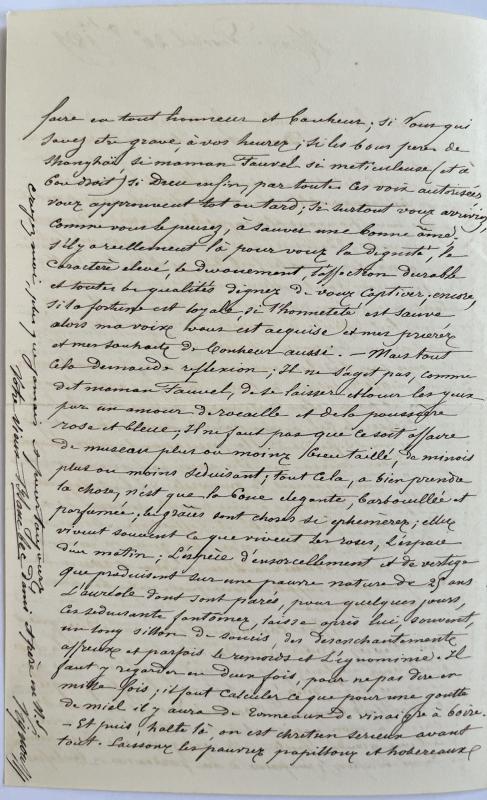 faire en tout honneur et bonheur ; si Vous qui
savez être grave, à vos heures ; si les bons pères de
Shanghai si maman Fauvel si meticuleuse (et à
bon droit) si Dieu enfin, par toutes ces voix autorisées,
vous approuvent tot ou tard ; si surtout vous arriviez,
comme vous le pensez, à sauver une bonne âme
s'il y a reellement là pour vous la dignité, le
caractère elevé, le devouement, l'affection durable
et toutes les qualités dignes de vous captiver encore,
si la fortune est loyale, si l'honneteté est sauve
alors ma voix vous est acquise et mes prières
et mes souhaits de bonheur aussi. — Mais tout
cela demande reflexion ; Il ne s'agit pas, comme
dit maman Fauvel, de se laisser eblouir les yeux
par un amour de rocaille et de la poussière
rose et bleue ; Il ne faut pas que ce soit affaire
de museau plus ou moins bien taillé, de minois
plus ou moins séduisant ; tout cela, a bien prendre
la chose, n'est que la boue elegante, barbouillée et
parfumée ; les grâces sont choses si ephémères ; elles
vivent souvent ce que vivent les roses, l'espace
d'un matin ; L'espèce d'ensorcellement et de vertige
que produisent sur une pauvre nature de 25 ans
L'aureole dont sont parés, pour quelques jours,
ces séduisants fantômes, laisse après lui, souvent,
un long sillon de soucis, des desenchantements
affreux et parfois le remords et L'ignominie. Il
faut y regarder en deux fois, pour ne pas dire en
mille fois ; il faut calculer ce que pour une goutte
de miel il y aura de tonneaux de vinaigre à boire.
— Et puis, halte là, on est chretien serieux avant
tout. Laissons les pauvres papillons et hobereaux
croyez moi, plus que jamais et pour toujours
Votre vieux
ami
en N. S.